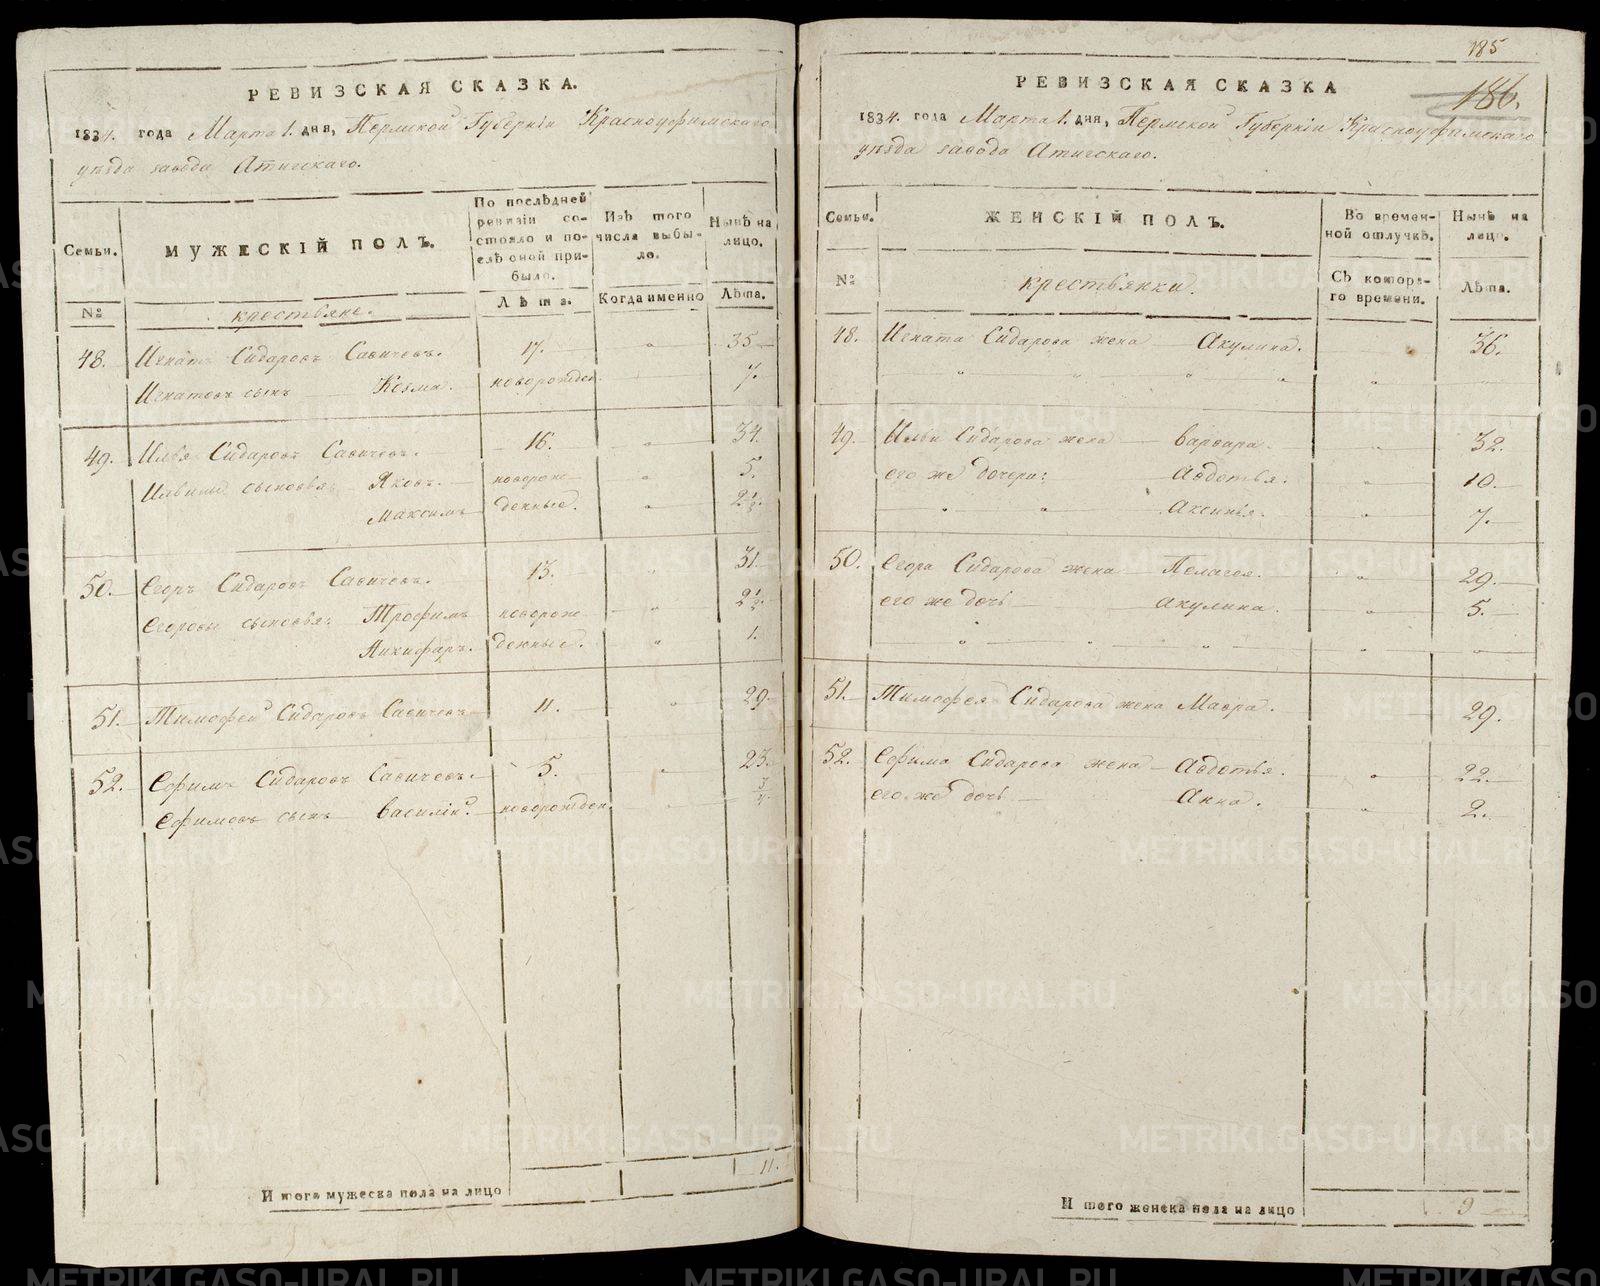 РЕВИЗСКАЯ СКАЗКА.
1834. года Марта 1. дня, Пермской Губерніи Красноуфимскаго
уѣзда завода Атигскаго.
Семьи.
МУЖЕСКІЙ ПОЛЪ.
По послѣдней
ревизіи со-
стояло и по-
слѣ оной при-
было.
Изъ того
числа выбы-
ло.
Нынѣ на
лицо.
№
крестьяне.
Лѣта.
Когда именно
Лѣта.
48. Игнатъ Сидаровъ Савичевъ. 17. " 35
Игнатовъ сынъ Козма. новорожден. 7.
49. Илья Сидаровъ Савичевъ. 16. " 34.
Ильины сыновья: Яковъ. новорож- " 5.
Максимъ денные. " 2 1/2.
50. Егоръ Сидаровъ Савичевъ. 13. " 31.
Егоровы сыновья: Трофимъ новорож " 2 1/2.
Никифаръ. денные. " 1.
51. Тимофей Сидаровъ Савичевъ 11. " 29
52. Ефимъ Сидаровъ Савичевъ. 5. " 23.
Ефимовъ сынъ Василій. новорожден. 3/4.
Итого мужеска пола на лицо 11.
185
186.
РЕВИЗСКАЯ СКАЗКА
1834. года Марта 1. дня, Пермской Губерніи Красноуфимскаго
уѣзда завода Атигскаго.
Семьи.
ЖЕНСКІЙ ПОЛЪ.
Во времен-
ной отлучкѣ.
Нынѣ на
лицо.
№
крестьянки.
Съ котора-
го времени.
Лѣта.
48. Игната Сидарова жена Акулина. 36.
" " " " "
49. Ильи Сидарова жена Варвара. " 32.
его же дочери: Авдотья. " 10.
" " Аксинья. " 7.
50. Егора Сидарова жена Пелагея. " 29.
его же дочь Акулина. " 5.
" " " " "
51. Тимофея Сидарова жена Мавра. 29.
52. Ефима Сидарова жена Авдотья. " 22.
его же дочь Анна. " 2.
Итого женска пола на лицо 9
METRIKI.GASO-URAL.RU